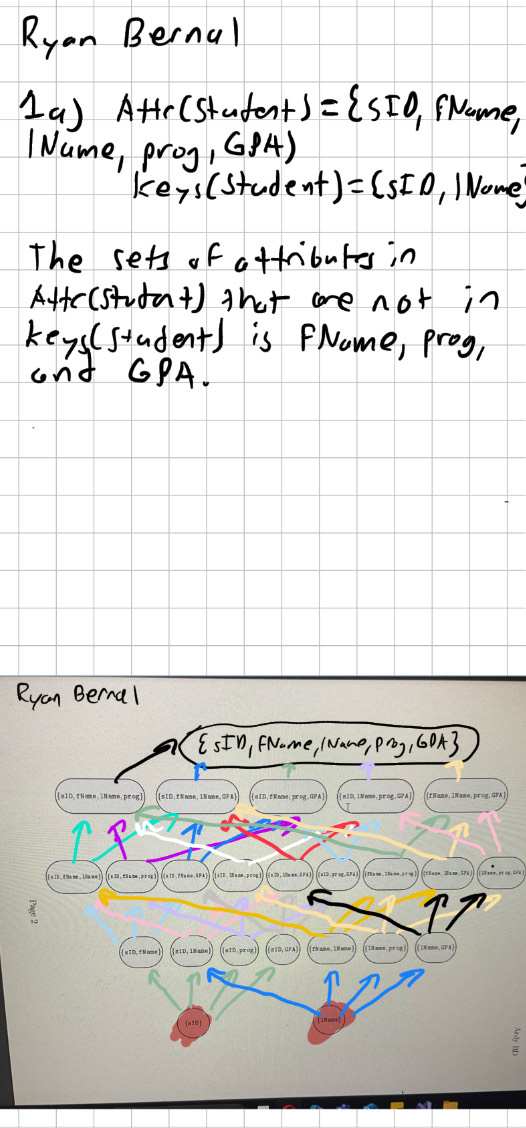 Ryan Bernal
1a) Attr(Student)={sID, fName,
lName, prog, GPA)
keys(Student)={sID, lName}
The sets of attributes in
Attr(Student) that are not in
keys(student) is fName, prog,
and GPA.
Ryan Bernal
{sID, fName, lName, prog, GPA}
{sID, fName, lName, prog} {sID, fName, lName, GPA} {sID, fName, prog, GPA} {sID, lName, prog, GPA} {fName, lName, prog, GPA}
{sID, fName, lName} {sID, fName, prog} {sID, fName, GPA} {sID, lName, prog} {sID, lName, GPA} {sID, prog, GPA} {fName, lName, prog} {fName, lName, GPA} {lName, prog, GPA}
Page 2
{sID, fName} {sID, lName} {sID, prog} {sID, GPA} {fName, lName} {lName, prog} {lName, GPA}
{sID} {lName}